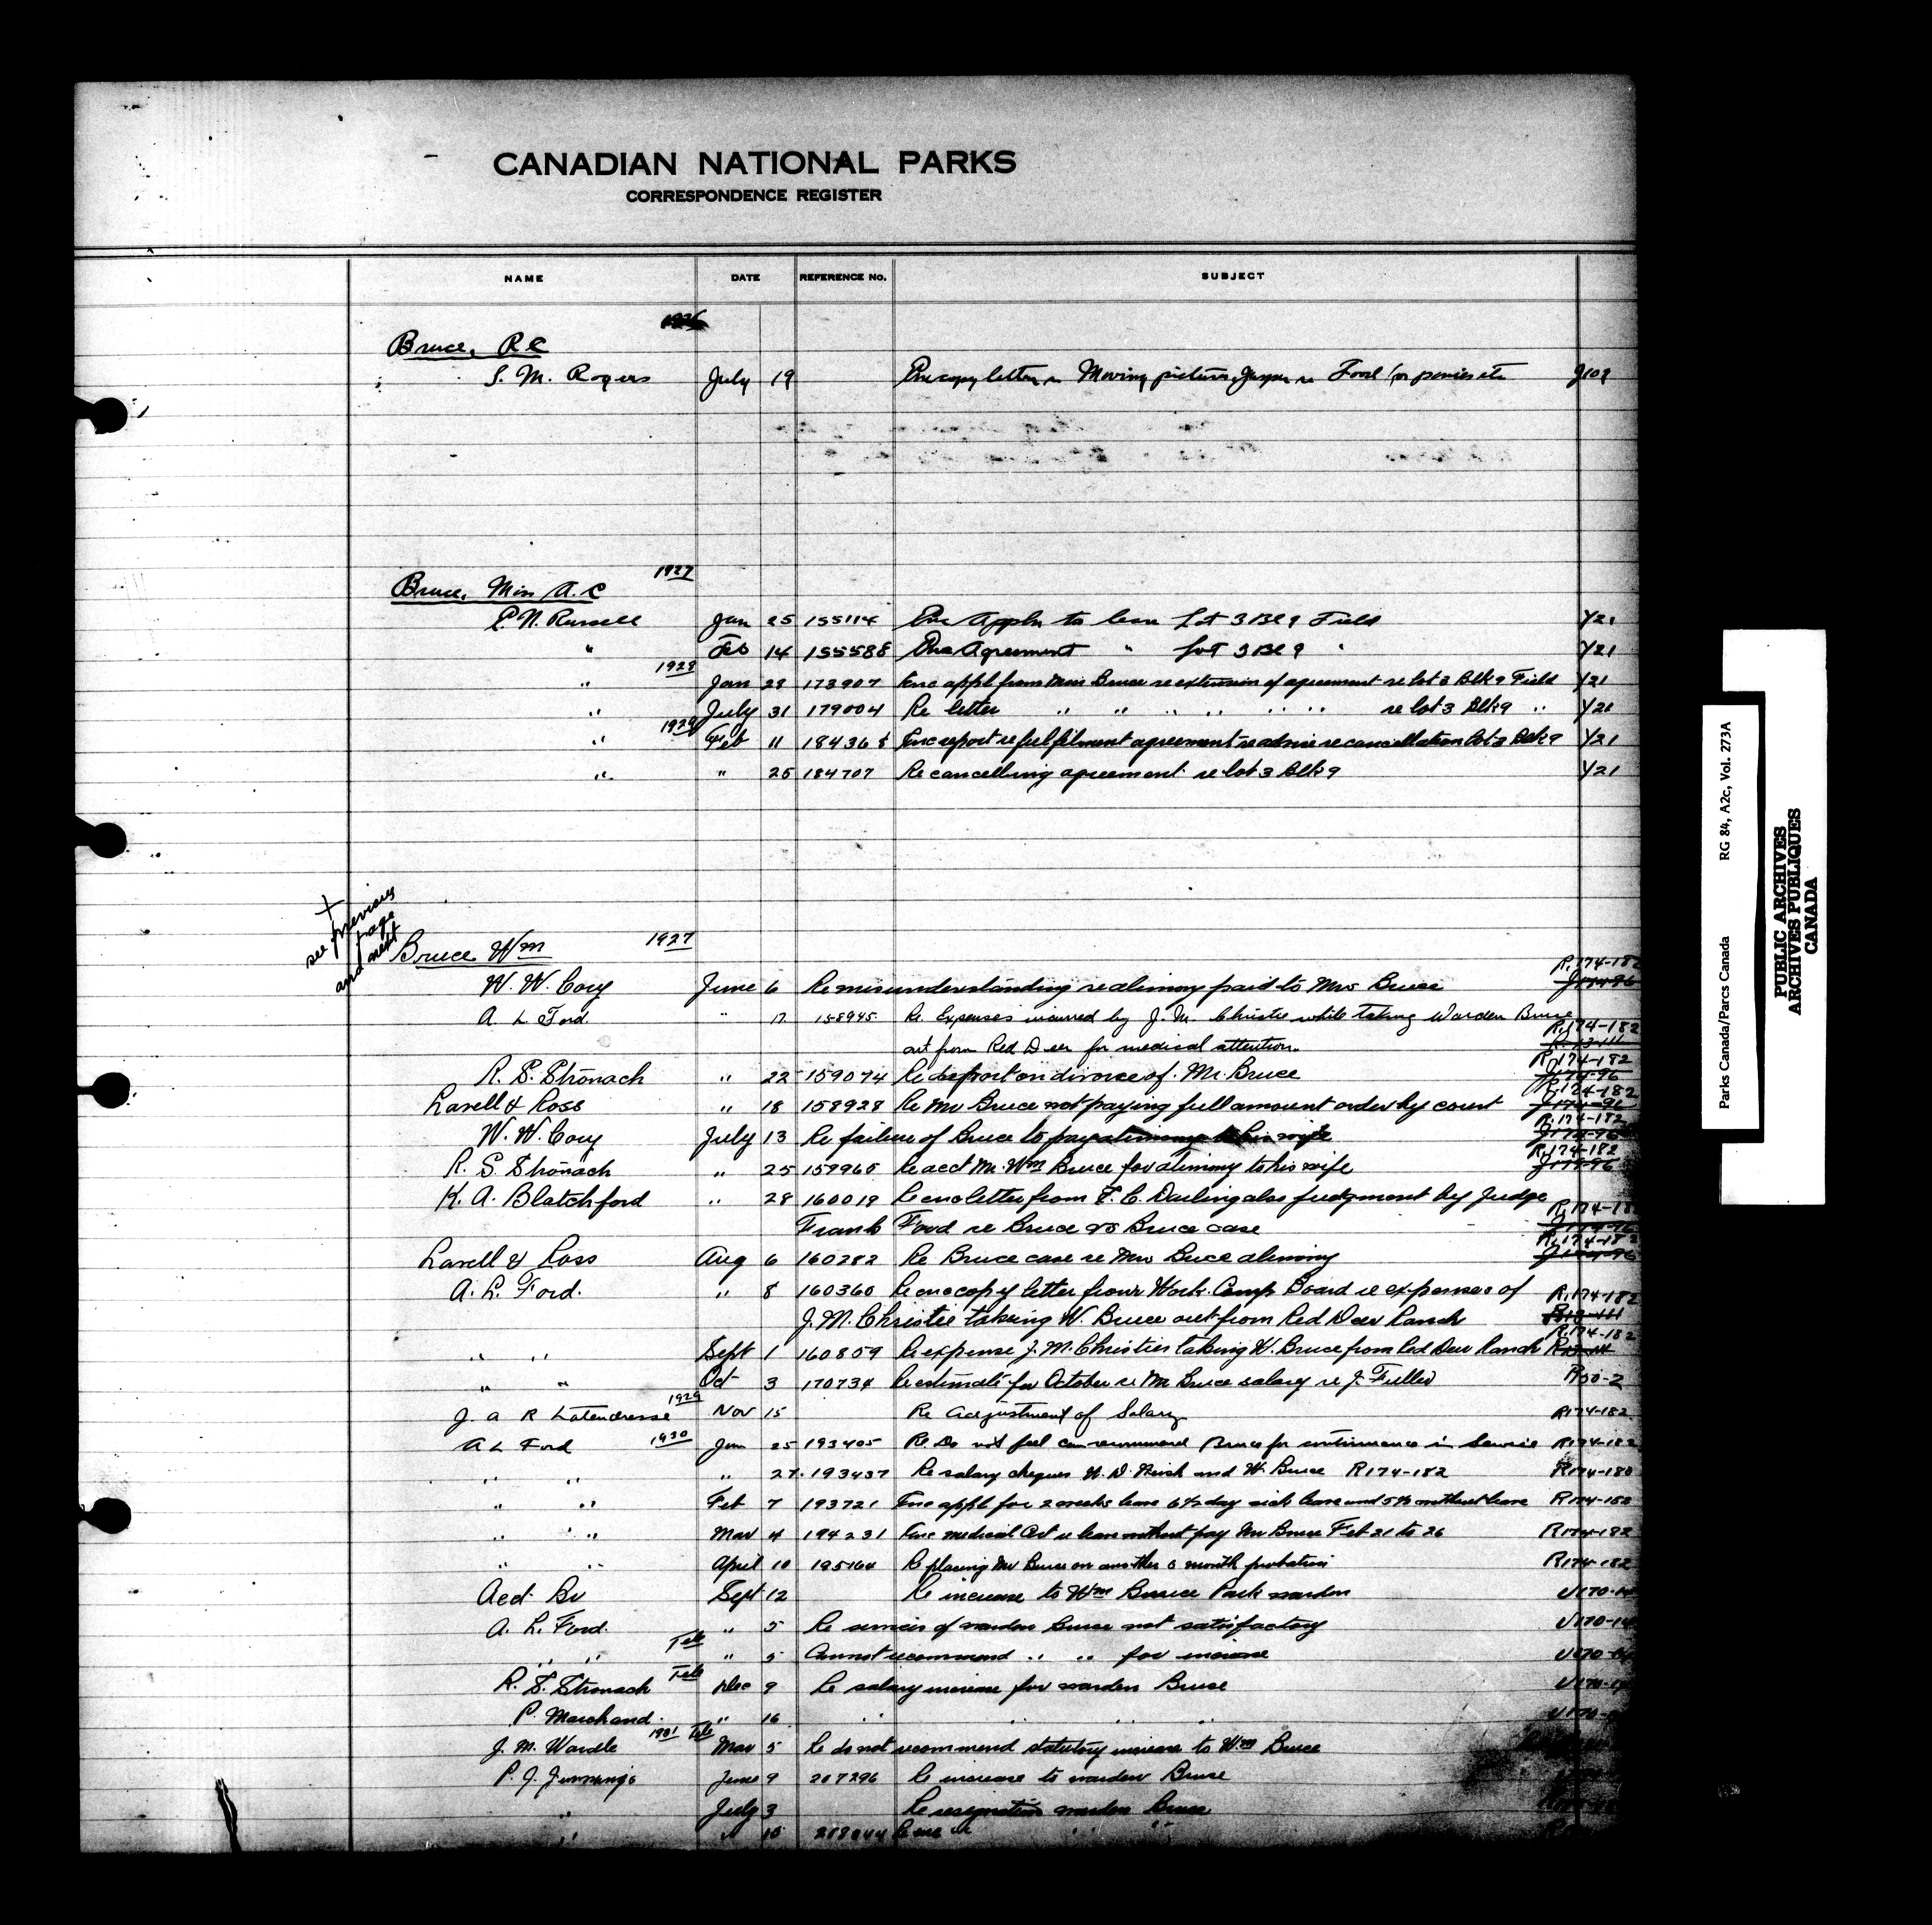 CANADIAN NATIONAL PARKS
CORRESPONDENCE REGISTER
NAME DATE REFERENCE No. SUBJECT
Bruce, R C
S. M. Rogers July 19 copy letter Moving picture Jasper re Food for ponies etc J109
1927
Bruce, Miss A. C
P. N. Russell Jan 25 155114 Enc Appln to lease Lot 3 Bl 9 Field Y21
" Feb 14 155588 Enc Agreement " Lot 3 Bl 9 " Y21
1928
" Jan 28 173907 Enc appl from Miss Bruce re extension of agreement re lot 3 Blk 9 Field Y21
" July 31 179004 Re letter " " " " " " re lot 3 Blk 9 " Y21
1929
" Feb 11 184368 Enc report re fulfilment agreement re advise re cancellation lot 3 Blk 9 Y21
" " 25 184707 Re cancelling agreement re lot 3 Blk 9 Y21
+ see previous page and next
Bruce Wm 1927
R.174-182
W. W. Cory June 6 Re misunderstanding re alimony paid to Mrs Bruce J174-96
A. L. Ford. " 17 158945 Re Expenses incurred by J. M. Christie while taking Warden Bruce
R.174-182
out from Red Deer for medical attention.
R.174-182
R. S. Stronach " 22 159074 Re report on divorce of Mr. Bruce J174-96
R.174-182
Lavell & Ross " 18 158928 Re Mr Bruce not paying full amount order by court J174-96
R.174-182
W. W. Cory July 13 Re failure of Bruce to pay alimony to his wife J174-96
R.174-182
R. S. Stronach " 25 159965 Re acct Mr. Wm Bruce for alimony to his wife J174-96
K. A. Blatchford " 28 160019 Re enc letter from F. C. Darling also judgment by Judge
R.174-182
Frank Ford re Bruce vs Bruce case J174-96
R.174-182
Lavell & Ross Aug 6 160282 Re Bruce case re Mrs Bruce alimony J174-96
A. L. Ford. " 8 160360 Re enc copy letter from Work. Comp Board re expenses of R.174-182
J. M. Christie taking W. Bruce out from Red Deer Ranch
R.174-182
" " Sept 1 160859 Re expense J. M. Christies taking W. Bruce from Red Deer Ranch
" " Oct 3 170734 Re estimate for October re Mr Bruce salary re J. Fuller R50-2
1929
J. A R Latendresse Nov 15 Re Adjustment of Salary R174-182
A L Ford 1930 Jan 25 193405 Re. Do not feel can recommend Bruce for continuance in Service R174-182
" " " 27. 193437 Re salary cheques and W. Bruce R174-182 R174-180
" " Feb 7 193721 Enc appl for 2 weeks leave 6½ day sick leave and 5½ without leave R174-182
" " Mar 4 194231 Enc medical Cert re leave without pay Mr Bruce Feb 21 to 26 R174-182
" " April 10 195164 Re placing Mr Bruce on another 6 month probation R174-182
Acct Br Sept 12 Re increase to Wm Bruce Park warden
A. L. Ford. " 5 Re services of warden Bruce not satisfactory
" " Tele " 5 Cannot recommend " " for increase
R. S. Stronach Tele Dec 9 Re salary increase for warden Bruce
P. Marchand. " 16 " " " "
1931 Tele
J. M. Wardle Mar 5 Re do not recommend statutory increase to Wm Bruce
P. J. Jennings June 9 207296 Re increase to warden Bruce
" July 3 Re resignation warden Bruce
" " 10
Parks Canada/Parcs Canada RG 84, A2c, Vol. 273A
PUBLIC ARCHIVES
ARCHIVES PUBLIQUES
CANADA